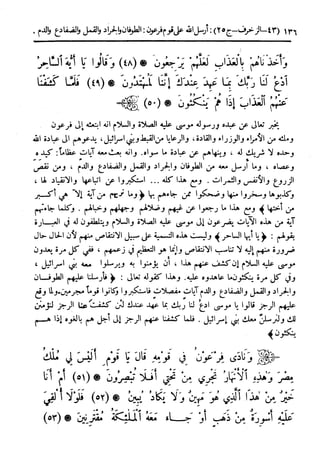 ١٣٦ (٤٣-سالزخرف-ج٢٥): أرسل الله على قوم فرعون: الطوفان والجراد والقمل والضفادع والدم.
وَأَخَذْنَاهُمْ بِالْعَذَابِ لَعَلَّهُمْ يَرْجِعُونَ * (٤٨) وَقَالُوا يَا أَيُّهَ السَّاحِرُ
ادْعُ لَنَا رَبَّكَ بِمَا عَهِدَ عِنْدَكَ إِنَّنَا لَمُهْتَدُونَ * (٤٩) فَلَمَّا كَشَفْنَا
عَنْهُمُ الْعَذَابَ إِذَا هُمْ يَنْكُثُونَ * (٥٠)
يخبر تعالى عن عبده ورسوله موسى عليه الصلاة والسلام انه ابتعثه إلى فرعون
وملئه من الأمراء والوزراء والقادة، والرعايا من القبط وبني اسرائيل، يدعوهم الى عبادة الله
وحده لا شريك له، وينهاهم عن عبادة ما سواه. وانه بعث معه آيات عظاماً: كيده
وعصاه، وما أرسل معه من الطوفان والجراد والقمل والضفادع والدم، ومن نقص
الزروع والأنفس والثمرات. ومع هذا كله... استكبروا عن اتباعها والانقياد لها،
وكذبوها وسخروا منها وضحكوا ممن جاءهم بها ﴿وما نريهم من آية إلا هي أكبر
من أختها﴾ ومع هذا ما رجعوا عن غيهم وضلالهم وجهلهم وخبالهم. وكلما جاءتهم
آية من هذه الآيات يضرعون إلى موسى عليه الصلاة والسلام ويتلطفون له في العبارة
بقولهم: ﴿يا أيها الساحر﴾ وليست هذه التسمية على سبيل الانتقاص منهم لأن الحال حال
ضرورة منهم إليه لا تناسب الانتقاص وإنما هو التعظيم في زعمهم، ففي كل مرة يعدون
موسى عليه السلام إن كشف عنهم هذا، أن يؤمنوا به ويرسلوا معه بني اسرائيل،
وفي كل مرة ينكثون ما عاهدوه عليه. وهذا كقوله تعالى: ﴿فأرسلنا عليهم الطوفان
والجراد والقمل والضفادع والدم آيات مفصلات فاستكبروا وكانوا قوماً مجرمين. ولما وقع
عليهم الرجز قالوا يا موسى ادع لنا ربك بما عهد عندك لئن كشفت عنا الرجز لنؤمنن
لك ولنرسلن معك بني إسرائيل. فلما كشفنا عنهم الرجز إلى أجل هم بالغوه إذا هـم
ينكثون﴾
وَنَادَى فِرْعَوْنُ فِي قَوْمِهِ قَالَ يَا قَوْمِ أَلَيْسَ لِي مُلْكُ
مِصْرَ وَهٰذِهِ الْأَنْهَارُ تَجْرِي مِنْ تَحْتِي أَفَلَا تُبْصِرُونَ * (٥١) أَمْ أَنَا
خَيْرٌ مِنْ هٰذَا الَّذِي هُوَ مَهِينٌ وَلَا يَكَادُ يُبِينُ * (٥٢) فَلَوْلَا أُلْقِيَ
عَلَيْهِ أَسْوِرَةٌ مِنْ ذَهَبٍ أَوْ جَاءَ مَعَهُ الْمَلٰئِكَةُ مُقْتَرِنِينَ * (٥٣)